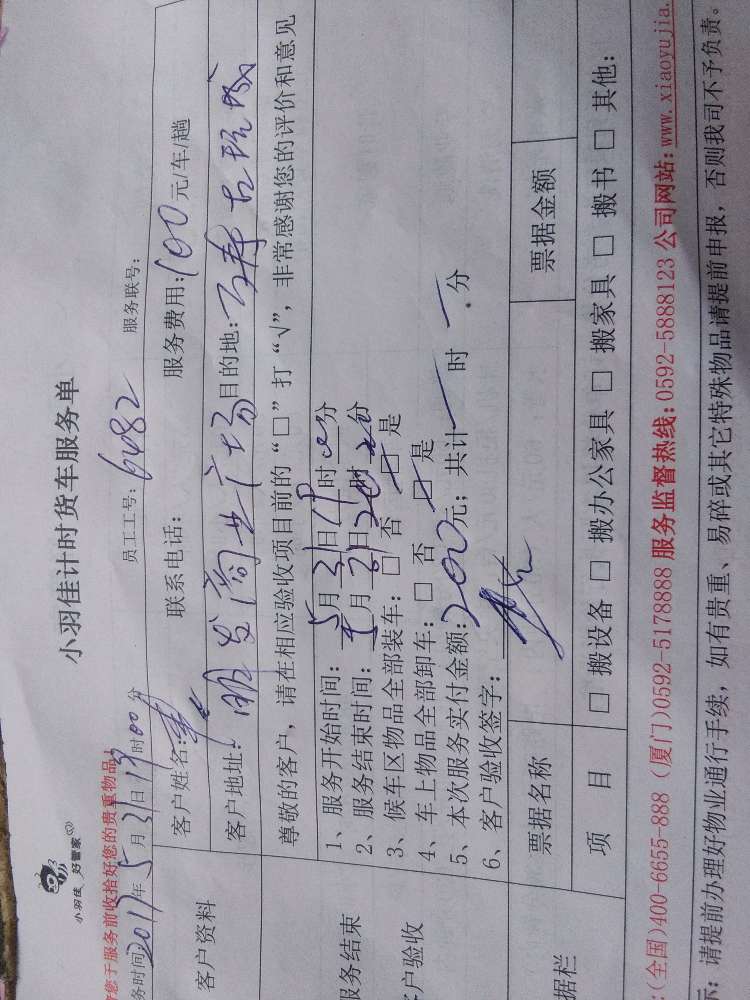 小羽佳 好管家
小羽佳计时货车服务单
您于服务前收拾好您的贵重物品!
务时间 2017年5月31日19时00分 员工工号: 6482 服务联号:
客户资料
客户姓名: 联系电话: 服务费用: 100元/车/趟
客户地址: 明发商业广场 目的地:
尊敬的客户,请在相应验收项目前的“□”打“√”,非常感谢您的评价和意见
服务结束
客户验收
1、服务开始时间: 5月31日19时00分
2、服务结束时间: 5月31日20时20分
3、候车区物品全部装车: □ 否 □ 是
4、车上物品全部卸车: □ 否 □ 是
5、本次服务实付金额: 200元; 共计 时 分
6、客户验收签字:
据栏
票据名称 票据金额
项 目 □ 搬设备 □ 搬办公家具 □ 搬家具 □ 搬书 □ 其他:
(全国)400-6655-888 (厦门)0592-5178888 服务监督热线:0592-5888123 公司网站:www.xiaoyujia.
示: 请提前办理好物业通行手续,如有贵重、易碎或其它特殊物品请提前申报,否则我司不予负责。